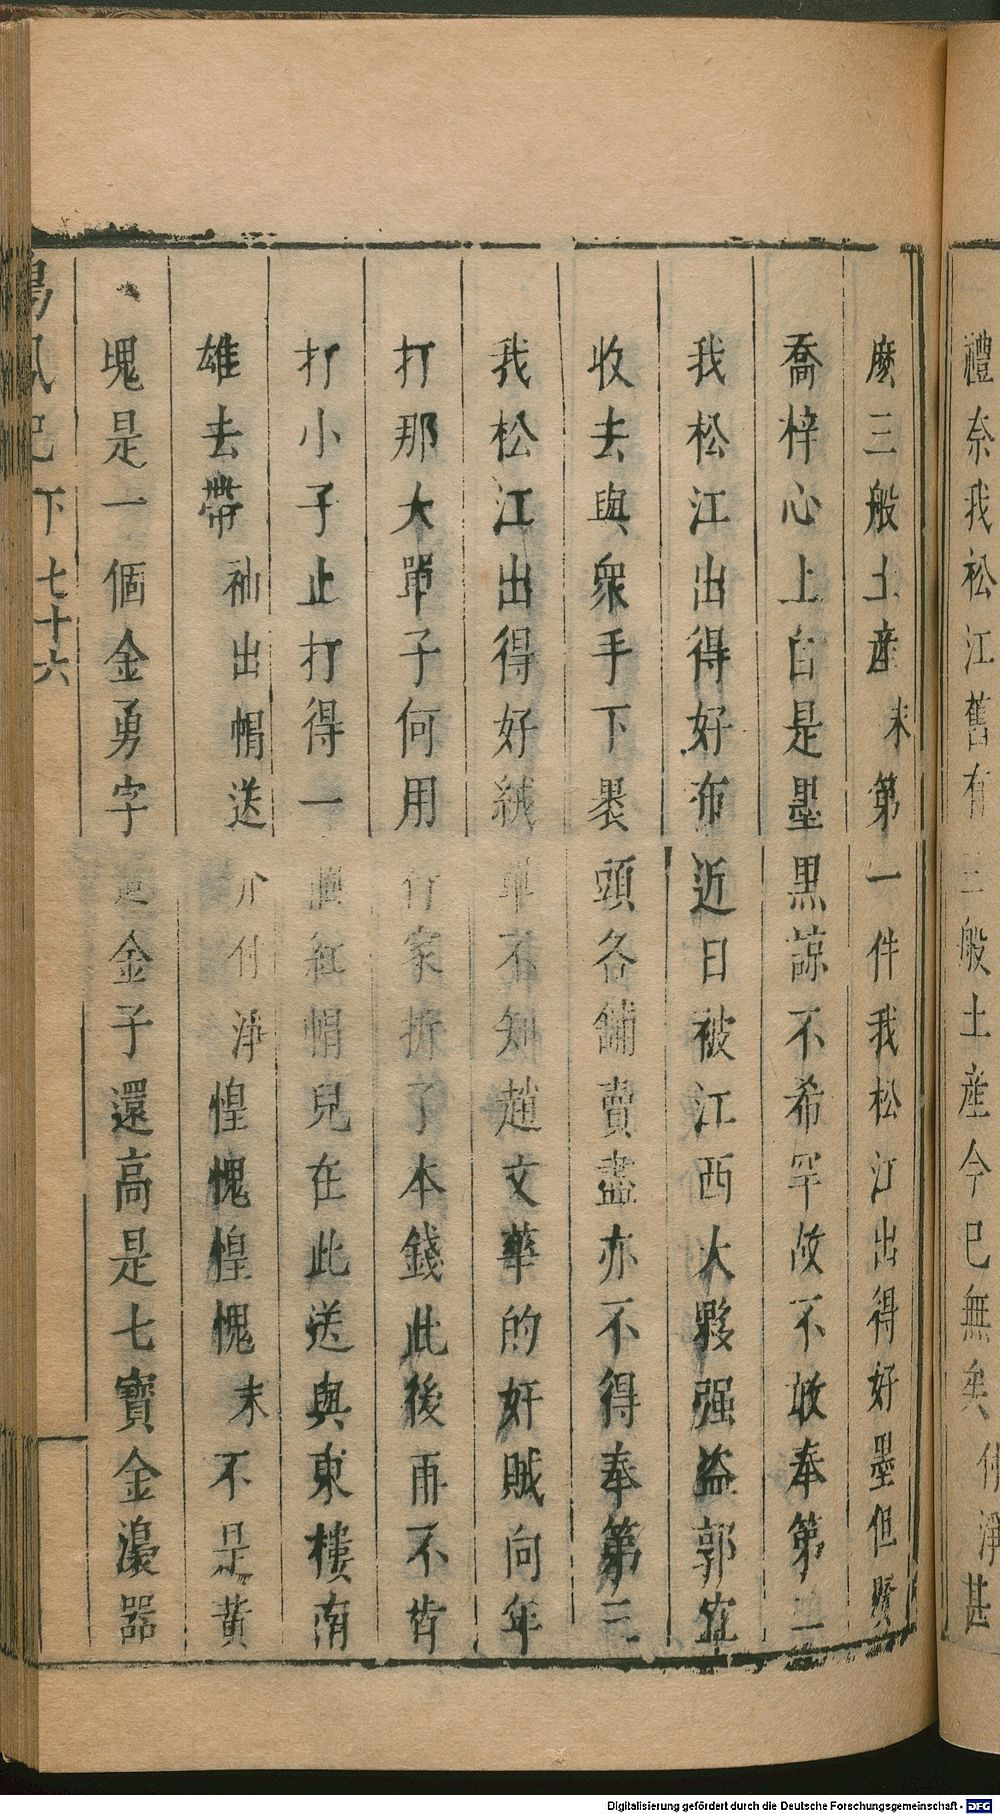 禮奈我松江舊有三般土産今已無矣付淨甚
麽三般土産末第一件我松江出得好墨但賢
喬梓心上自是墨黑諒不希罕故不敢奉第二
我松江出得好布近日被江西大夥强盗郭宜
收去與衆手下裹頭各舖賣盡亦不得奉第三
我松江出得好絨單不知趙文華的奸賊向年
打那大單子何用行家折了本錢此後再不肯
打小子止打得一頂紅帽兒在此送與東樓南
雄去帶袖出帽送介付淨惶愧惶愧末不是黃
塊是一個金勇字這金子還高是七寶金瀼器
鳴鳳記下七十六
Digitalisierung gefördert durch die Deutsche Forschungsgemeinschaft - DFG